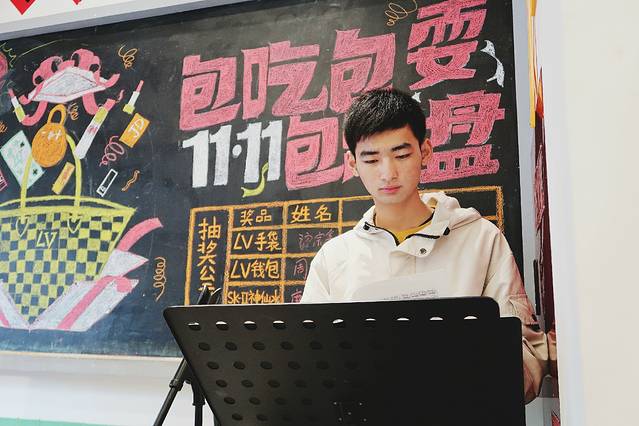 包吃包耍
11·11包 盘
LV
奖品 姓名
抽奖公
LV手袋
LV钱包 周
SK-II神仙水